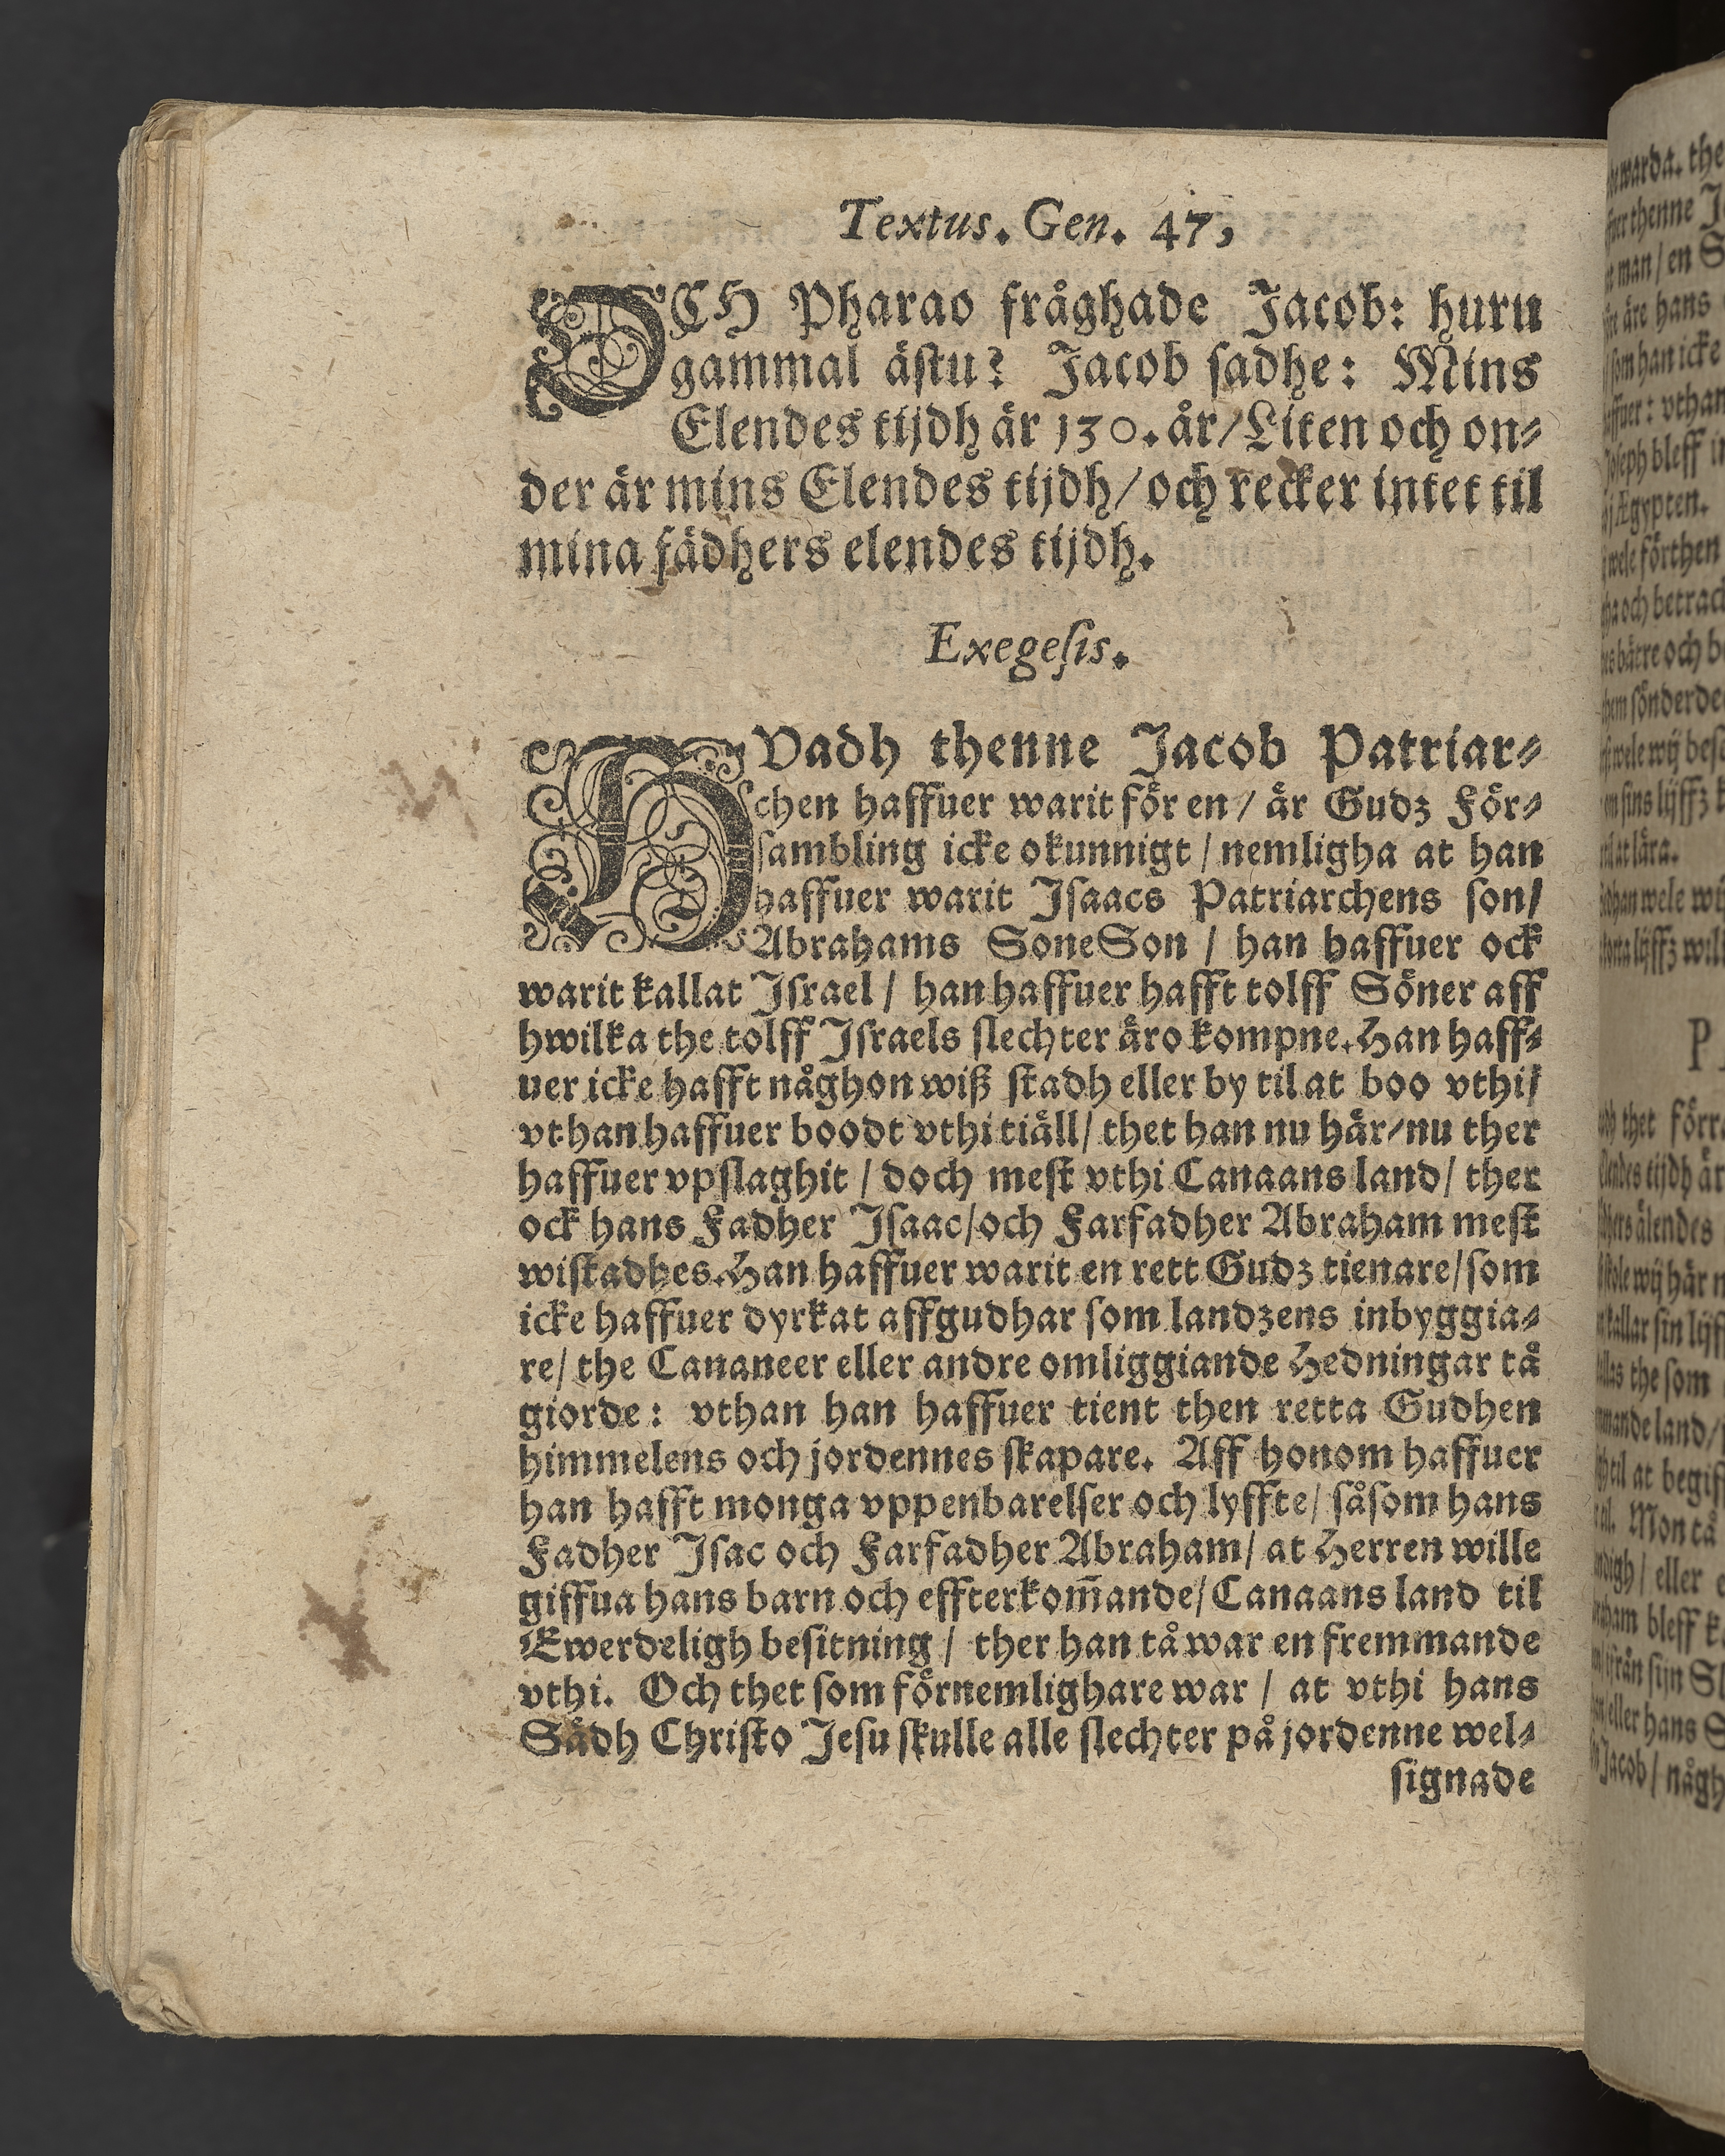 Textus. Gen. 47,
OCH Pharao fråghade Jacob: huru
gammal ästu? Jacob sadhe: Mins
Elendes tijdh är 130. år/ Liten och on⸗
der är mins Elendes tijdh/ och recker intet til
mina fädhers elendes tijdh.
Exegesis.
HVadh thenne Jacob Patriar⸗
chen haffuer warit för en/ är Gudz För⸗
sambling icke okunnigt/ nemligha at han
haffuer warit Isaacs Patriarchens son/
Abrahams SoneSon/ han haffuer ock
warit kallat Israel/ han haffuer hafft tolff Söner aff
hwilka the tolff Israels slechter äro kompne. Han haff⸗
uer icke hafft någhon wiß stadh eller by til at boo vthi/
vthan haffuer boodt vthi tiäll/ thet han nu här/ nu ther
haffuer vpslaghit/ doch mest vthi Canaans land/ ther
ock hans Fadher Isaac/ och Farfadher Abraham mest
wistadhes. Han haffuer warit en rett Gudz tienare/ som
icke haffuer dyrkat affgudhar som landzens inbyggia⸗
re/ the Cananeer eller andre omliggiande Hedningar tå
giorde: vthan han haffuer tient then retta Gudhen
himmelens och jordennes skapare. Aff honom haffuer
han hafft monga vppenbarelser och lyffte/ såsom hans
Fadher Isac och Farfadher Abraham/ at Herren wille
giffua hans barn och effterkom̄ande/ Canaans land til
Ewerdeligh besitning/ ther han tå war en fremmande
vthi. Och thet som förnemlighare war/ at vthi hans
Sädh Christo Jesu skulle alle slechter på jordenne wel⸗
signade